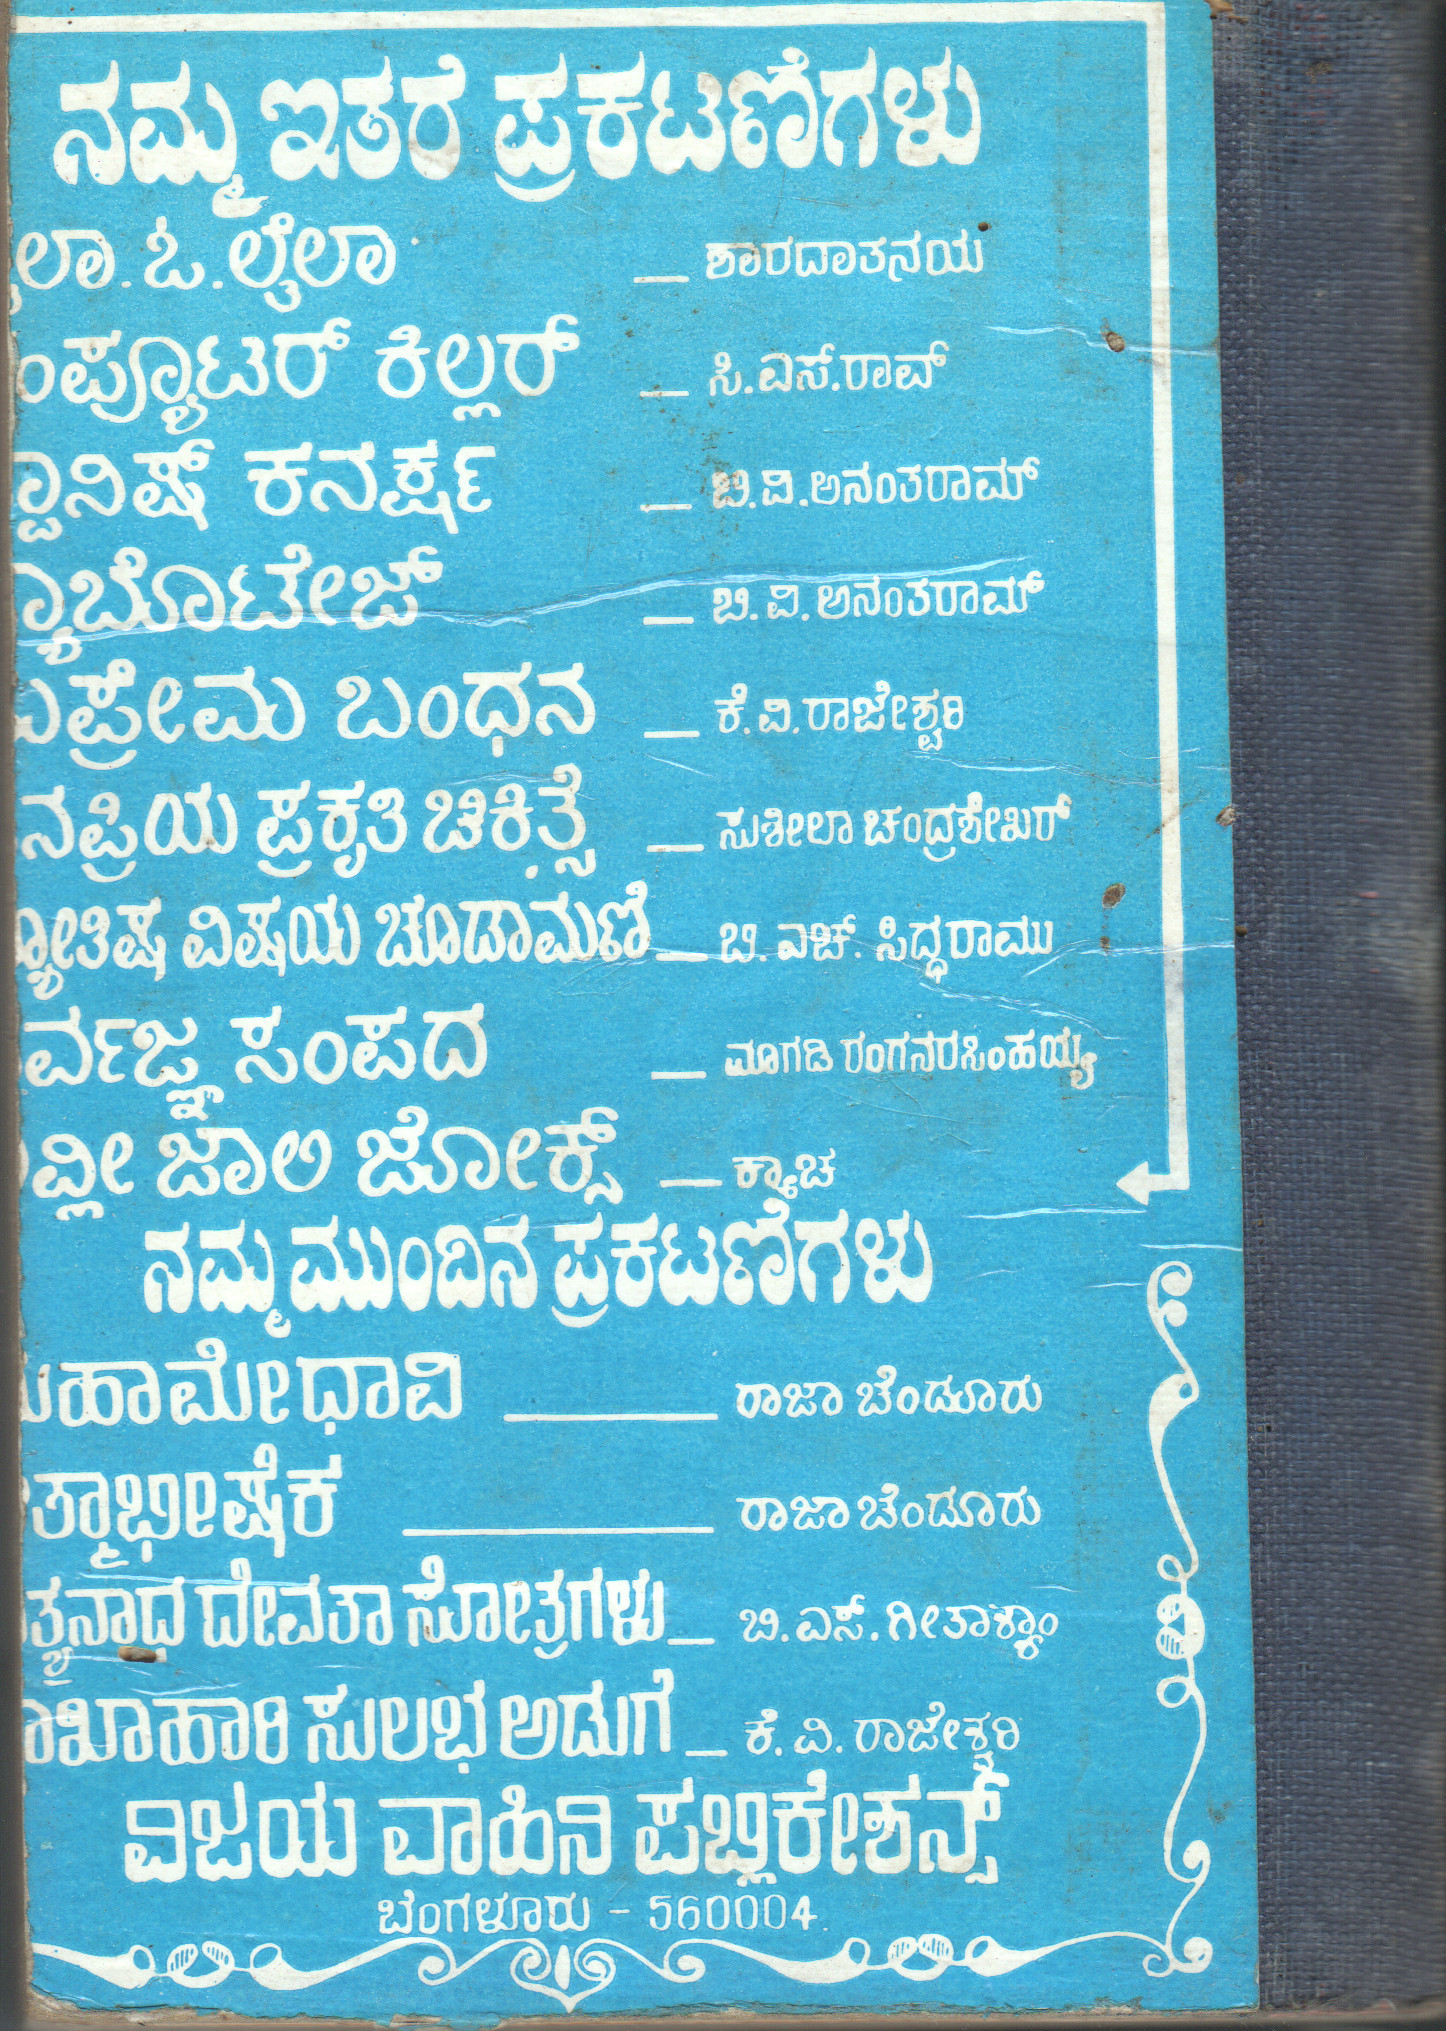 ನಮ್ಮ ಇತರೆ ಪ್ರಕಟಣೆಗಳು
ಲಾ. ಓ. ಲೈಲಾ — ಶಾರದಾತನಯ
ಂಪ್ಯೂಟರ್ ಕಿಲ್ಲರ್ — ಸಿ.ಎಸ್.ರಾವ್
ನಿಷ್ ಕನೆಕ್ಷನ್ — ಬಿ.ವಿ.ಅನಂತರಾಮ್
ಬೊಟೇಜ್ — ಬಿ.ವಿ.ಅನಂತರಾಮ್
ಪ್ರೇಮ ಬಂಧನ — ಕೆ.ವಿ.ರಾಜೇಶ್ವರಿ
ನಪ್ರಿಯ ಪ್ರಕೃತಿ ಚಿಕಿತ್ಸೆ — ಸುಶೀಲಾ ಚಂದ್ರಶೇಖರ್
್ಯೋತಿಷ ವಿಷಯ ಚೂಡಾಮಣಿ — ಬಿ. ಎಚ್. ಸಿದ್ಧರಾಮು
ರ್ವಜ್ಞ ಸಂಪದ — ಮಾಗಡಿ ರಂಗನರಸಿಂಹಯ್ಯ
ವ್ಲೀ ಜಾಲಿ ಜೋಕ್ಸ್ — ಕ್ಯಾಚ
ನಮ್ಮ ಮುಂದಿನ ಪ್ರಕಟಣೆಗಳು
ಹಾಮೇಧಾವಿ — ರಾಜಾ ಚೆಂಡೂರು
ತ್ಮಾಭೀಷೆಕ — ರಾಜಾ ಚೆಂಡೂರು
ತ್ಯನಾಥ ದೇವತಾ ಸೋತ್ರಗಳು — ಬಿ.ಎಸ್.
ಾಖಾಹಾರಿ ಸುಲಭ ಅಡುಗೆ — ಕೆ.ವಿ. ರಾಜೇಶ್ವರಿ
ವಿಜಯ ವಾಹಿನಿ ಪಬ್ಲಿಕೇಶನ್ಸ್
ಬೆಂಗಳೂರು - 560004.